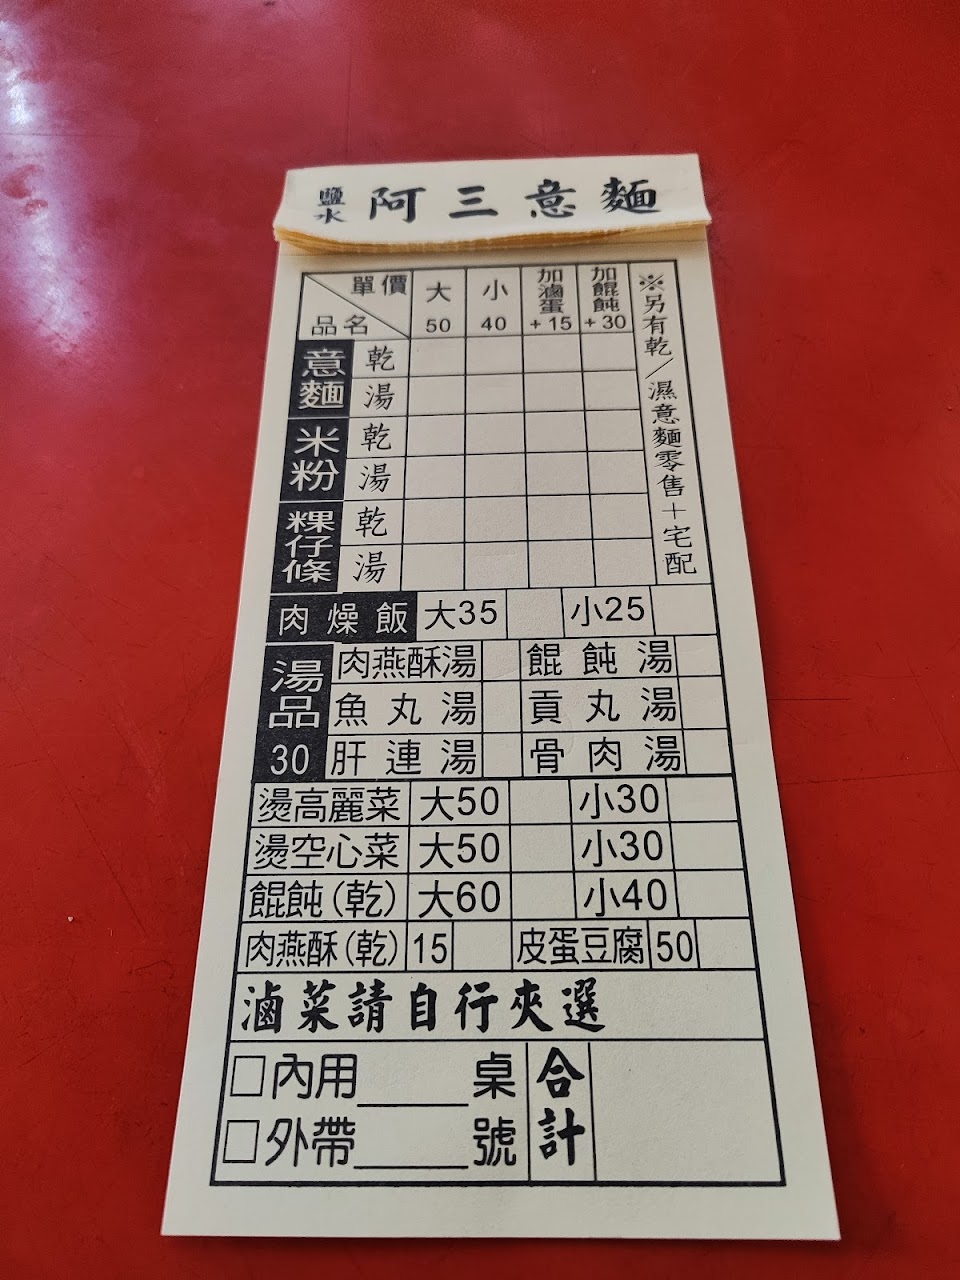 鹽水 阿三意麵
單價 品名 大 50 小 40 加滷蛋 +15 加餛飩 +30
意麵 乾
湯
米粉 乾
湯
粿仔條 乾
湯
※另有乾/濕意麵零售+宅配
肉燥飯 大35 小25
湯品 30
肉燕酥湯 餛飩湯
魚丸湯 貢丸湯
肝連湯 骨肉湯
燙高麗菜 大50 小30
燙空心菜 大50 小30
餛飩(乾) 大60 小40
肉燕酥(乾) 15 皮蛋豆腐 50
滷菜請自行夾選
□內用____桌
□外帶____號
合計